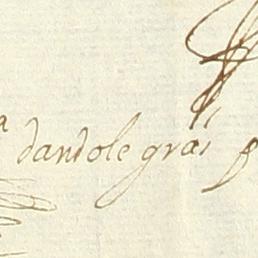 dandole gras